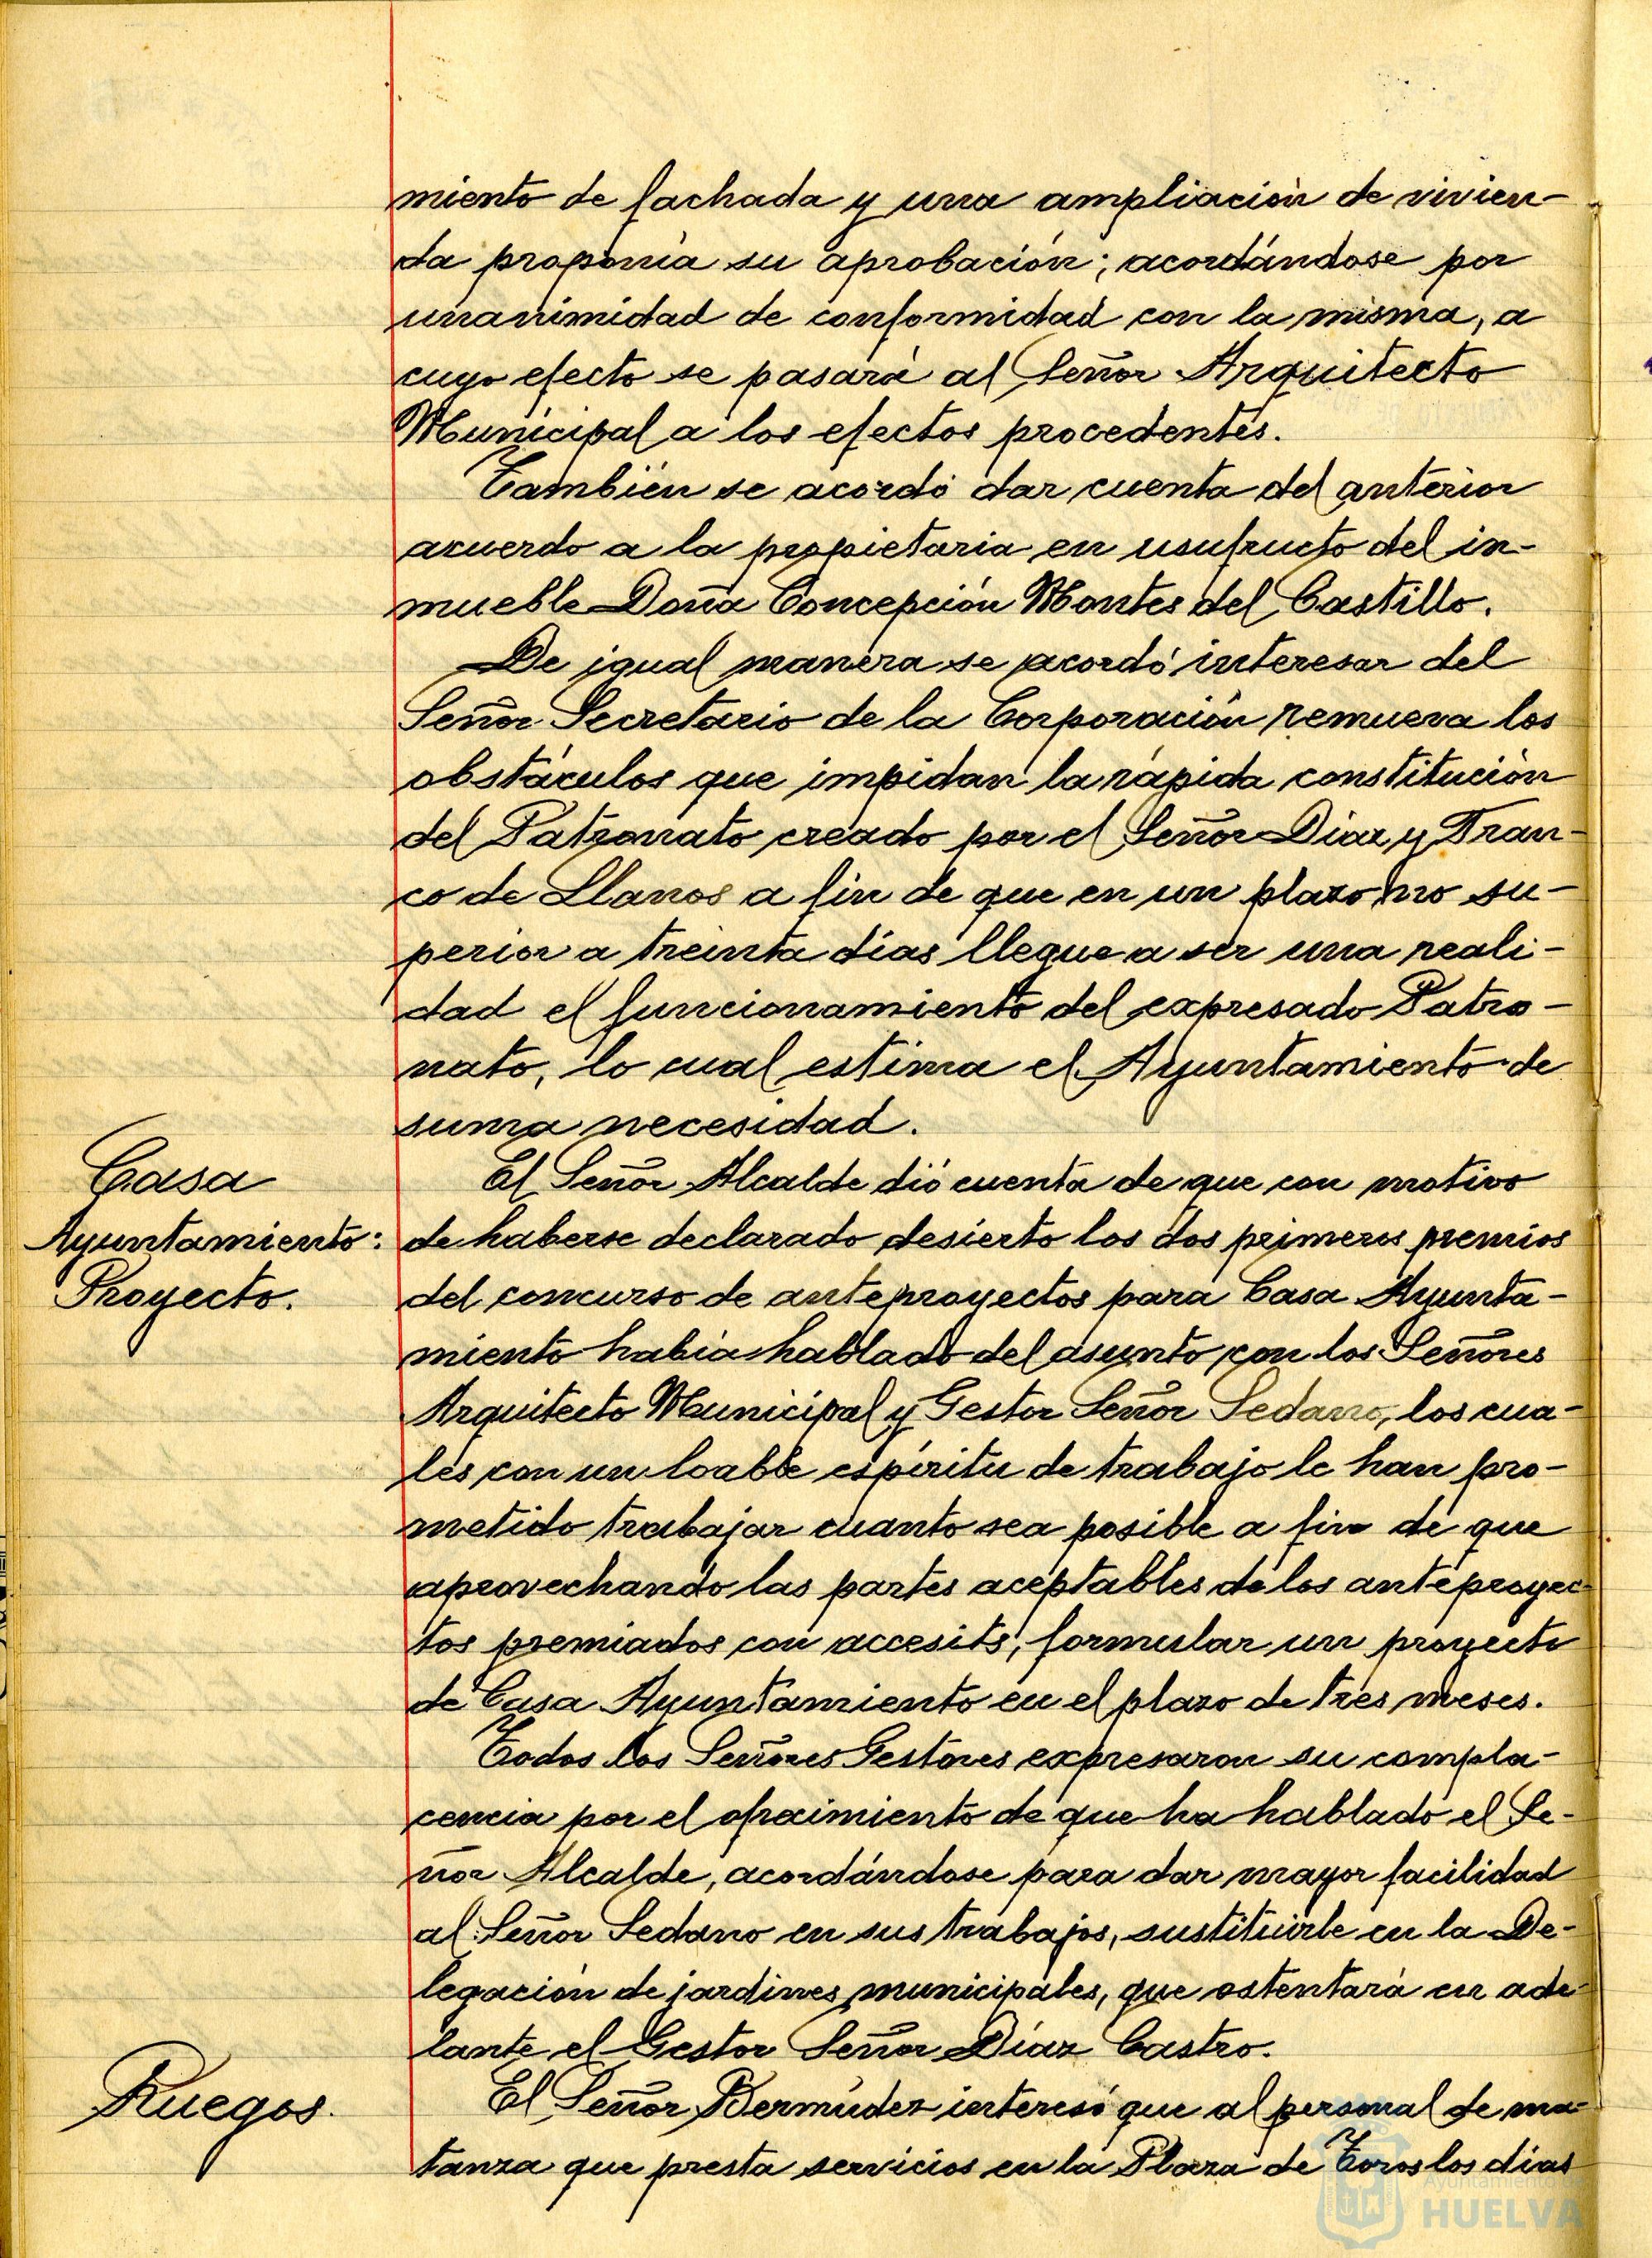 miento de fachada y una ampliación de vivien-
da proponía su aprobación; acordándose por
unanimidad de conformidad con la misma, a
cuyo efecto se pasará al Señor Arquitecto
Municipal a los efectos procedentes.
También se acordó dar cuenta del anterior
acuerdo a la propietaria en usufructo del in-
mueble Doña Concepción Montes del Castillo.
De igual manera se acordó interesar del
Señor Secretario de la Corporación remueva los
obstáculos que impidan la rápida constitución
del Patronato creado por el Señor Díaz y Fran-
co de Llanos a fin de que en un plazo no su-
perior a treinta días llegue a ser una reali-
dad el funcionamiento del expresado Patro-
nato, lo cual estima el Ayuntamiento de
suma necesidad.
Casa
Ayuntamiento:
Proyecto.
El Señor Alcalde dió cuenta de que con motivo
de haberse declarado desierto los dos primeros premios
del concurso de anteproyectos para Casa Ayunta-
miento había hablado del asunto con los Señores
Arquitecto Municipal y Gestor Señor Sedano, los cua-
les con un loable espíritu de trabajo le han pro-
metido trabajar cuanto sea posible a fin de que
aprovechando las partes aceptables de los anteproyec-
tos premiados con accesits, formular un proyecto
de Casa Ayuntamiento en el plazo de tres meses.
Todos los Señores Gestores expresaron su compla-
cencia por el ofrecimiento de que ha hablado el Se-
ñor Alcalde, acordándose para dar mayor facilidad
al Señor Sedano en sus trabajos, sustituirle en la De-
legación de jardines municipales, que ostentará en ade-
lante el Gestor Señor Díaz Castro.
Ruegos.
El Señor Bermúdez interesó que al personal de ma-
tanza que presta servicios en la Plaza de Toros los días
Ayuntamiento de
HUELVA